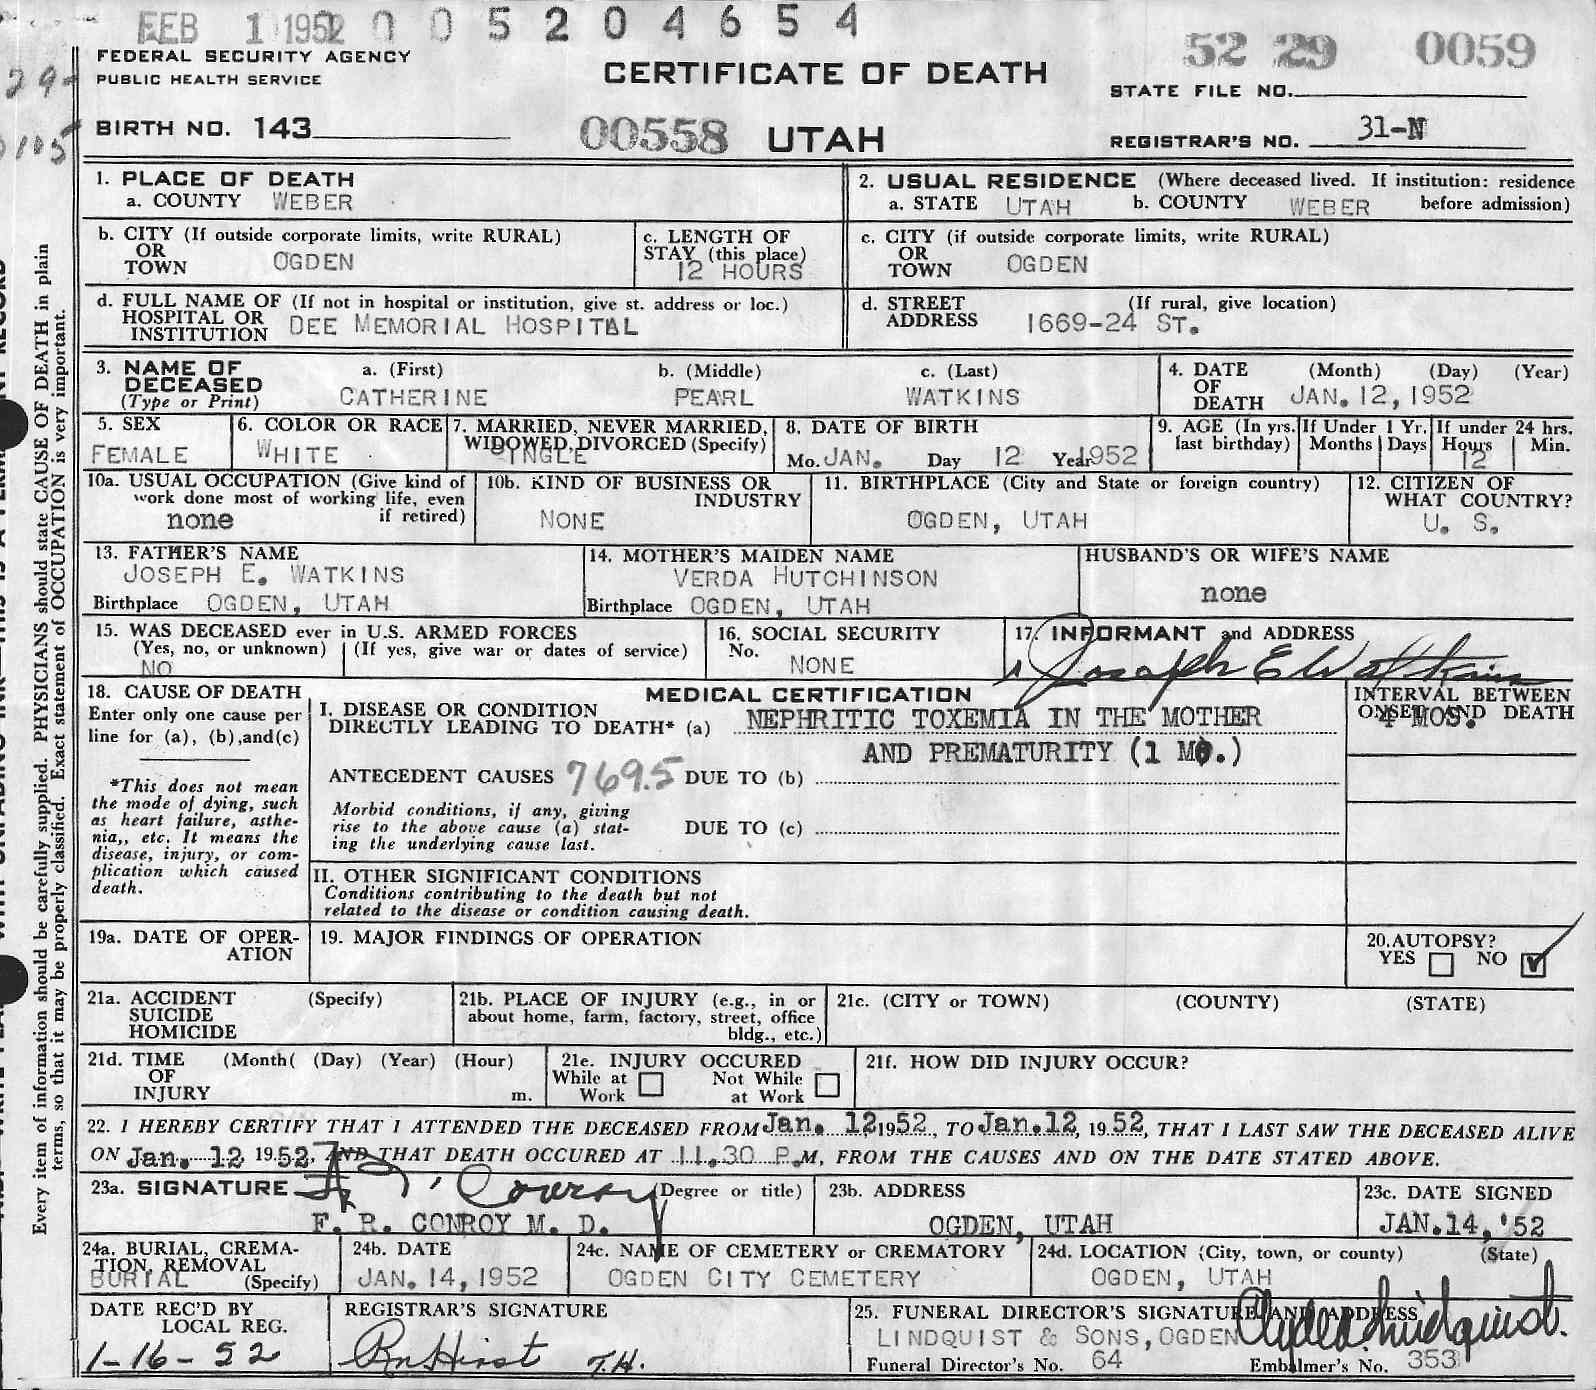 FEB 1 1952 0 0 5 2 0 4 6 5 4
FEDERAL SECURITY AGENCY
PUBLIC HEALTH SERVICE
CERTIFICATE OF DEATH
52 29 0059
STATE FILE NO.
BIRTH NO. 143
00558 UTAH
REGISTRAR'S NO. 31-N
1. PLACE OF DEATH
a. COUNTY WEBER
2. USUAL RESIDENCE (Where deceased lived. If institution: residence
a. STATE UTAH b. COUNTY WEBER before admission)
b. CITY (If outside corporate limits, write RURAL)
OR
TOWN OGDEN
c. LENGTH OF
STAY (this place)
12 HOURS
c. CITY (if outside corporate limits, write RURAL)
OR
TOWN OGDEN
d. FULL NAME OF (If not in hospital or institution, give st. address or loc.)
HOSPITAL OR
INSTITUTION DEE MEMORIAL HOSPITAL
d. STREET (If rural, give location)
ADDRESS 1669-24 ST.
3. NAME OF
DECEASED
(Type or Print)
a. (First) b. (Middle) c. (Last)
CATHERINE PEARL WATKINS
4. DATE (Month) (Day) (Year)
OF
DEATH JAN. 12, 1952
5. SEX
FEMALE
6. COLOR OR RACE
WHITE
7. MARRIED, NEVER MARRIED,
WIDOWED, DIVORCED (Specify)
8. DATE OF BIRTH
Mo. JAN. Day 12 Year 1952
9. AGE (In yrs.
last birthday)
If Under 1 Yr.
Months Days
If under 24 hrs.
Hours Min.
12
10a. USUAL OCCUPATION (Give kind of
work done most of working life, even
if retired)
none
10b. KIND OF BUSINESS OR
INDUSTRY
NONE
11. BIRTHPLACE (City and State or foreign country)
OGDEN, UTAH
12. CITIZEN OF
WHAT COUNTRY?
U. S.
13. FATHER'S NAME
JOSEPH E. WATKINS
Birthplace OGDEN, UTAH
14. MOTHER'S MAIDEN NAME
VERDA HUTCHINSON
Birthplace OGDEN, UTAH
HUSBAND'S OR WIFE'S NAME
none
15. WAS DECEASED ever in U.S. ARMED FORCES
(Yes, no, or unknown) (If yes, give war or dates of service)
NO
16. SOCIAL SECURITY
No.
NONE
17. INFORMANT and ADDRESS
Joseph E Watkins
18. CAUSE OF DEATH
Enter only one cause per
line for (a), (b), and (c)
*This does not mean
the mode of dying, such
as heart failure, asthe-
nia,, etc. It means the
disease, injury, or com-
plication which caused
death.
MEDICAL CERTIFICATION
I. DISEASE OR CONDITION
DIRECTLY LEADING TO DEATH* (a) NEPHRITIC TOXEMIA IN THE MOTHER
AND PREMATURITY (1 MO.)
ANTECEDENT CAUSES 769.5 DUE TO (b)
Morbid conditions, if any, giving
rise to the above cause (a) stat-
ing the underlying cause last.
DUE TO (c)
INTERVAL BETWEEN
ONSET AND DEATH
4 MOS.
II. OTHER SIGNIFICANT CONDITIONS
Conditions contributing to the death but not
related to the disease or condition causing death.
19a. DATE OF OPER-
ATION
19. MAJOR FINDINGS OF OPERATION
20. AUTOPSY?
YES NO
21a. ACCIDENT (Specify)
SUICIDE
HOMICIDE
21b. PLACE OF INJURY (e.g., in or
about home, farm, factory, street, office
bldg., etc.)
21c. (CITY or TOWN) (COUNTY) (STATE)
21d. TIME (Month( (Day) (Year) (Hour)
OF
INJURY m.
21e. INJURY OCCURED
While at Not While
Work at Work
21f. HOW DID INJURY OCCUR?
22. I HEREBY CERTIFY THAT I ATTENDED THE DECEASED FROM Jan. 12 1952, TO Jan. 12, 1952, THAT I LAST SAW THE DECEASED ALIVE
ON Jan. 12 1952, AND THAT DEATH OCCURED AT 11.30 P.M, FROM THE CAUSES AND ON THE DATE STATED ABOVE.
23a. SIGNATURE (Degree or title)
F. R. CONROY M. D.
23b. ADDRESS
OGDEN, UTAH
23c. DATE SIGNED
JAN. 14, '52
24a. BURIAL, CREMA-
TION, REMOVAL
BURIAL (Specify)
24b. DATE
JAN. 14, 1952
24c. NAME OF CEMETERY or CREMATORY
OGDEN CITY CEMETERY
24d. LOCATION (City, town, or county) (State)
OGDEN, UTAH
DATE REC'D BY
LOCAL REG.
1-16-52
REGISTRAR'S SIGNATURE
25. FUNERAL DIRECTOR'S SIGNATURE AND ADDRESS
LINDQUIST & SONS, OGDEN
Funeral Director's No. 64 Embalmer's No. 353
Every item of information should be carefully supplied. PHYSICIANS should state CAUSE OF DEATH in plain
terms, so that it may be properly classified. Exact statement of OCCUPATION is very important.